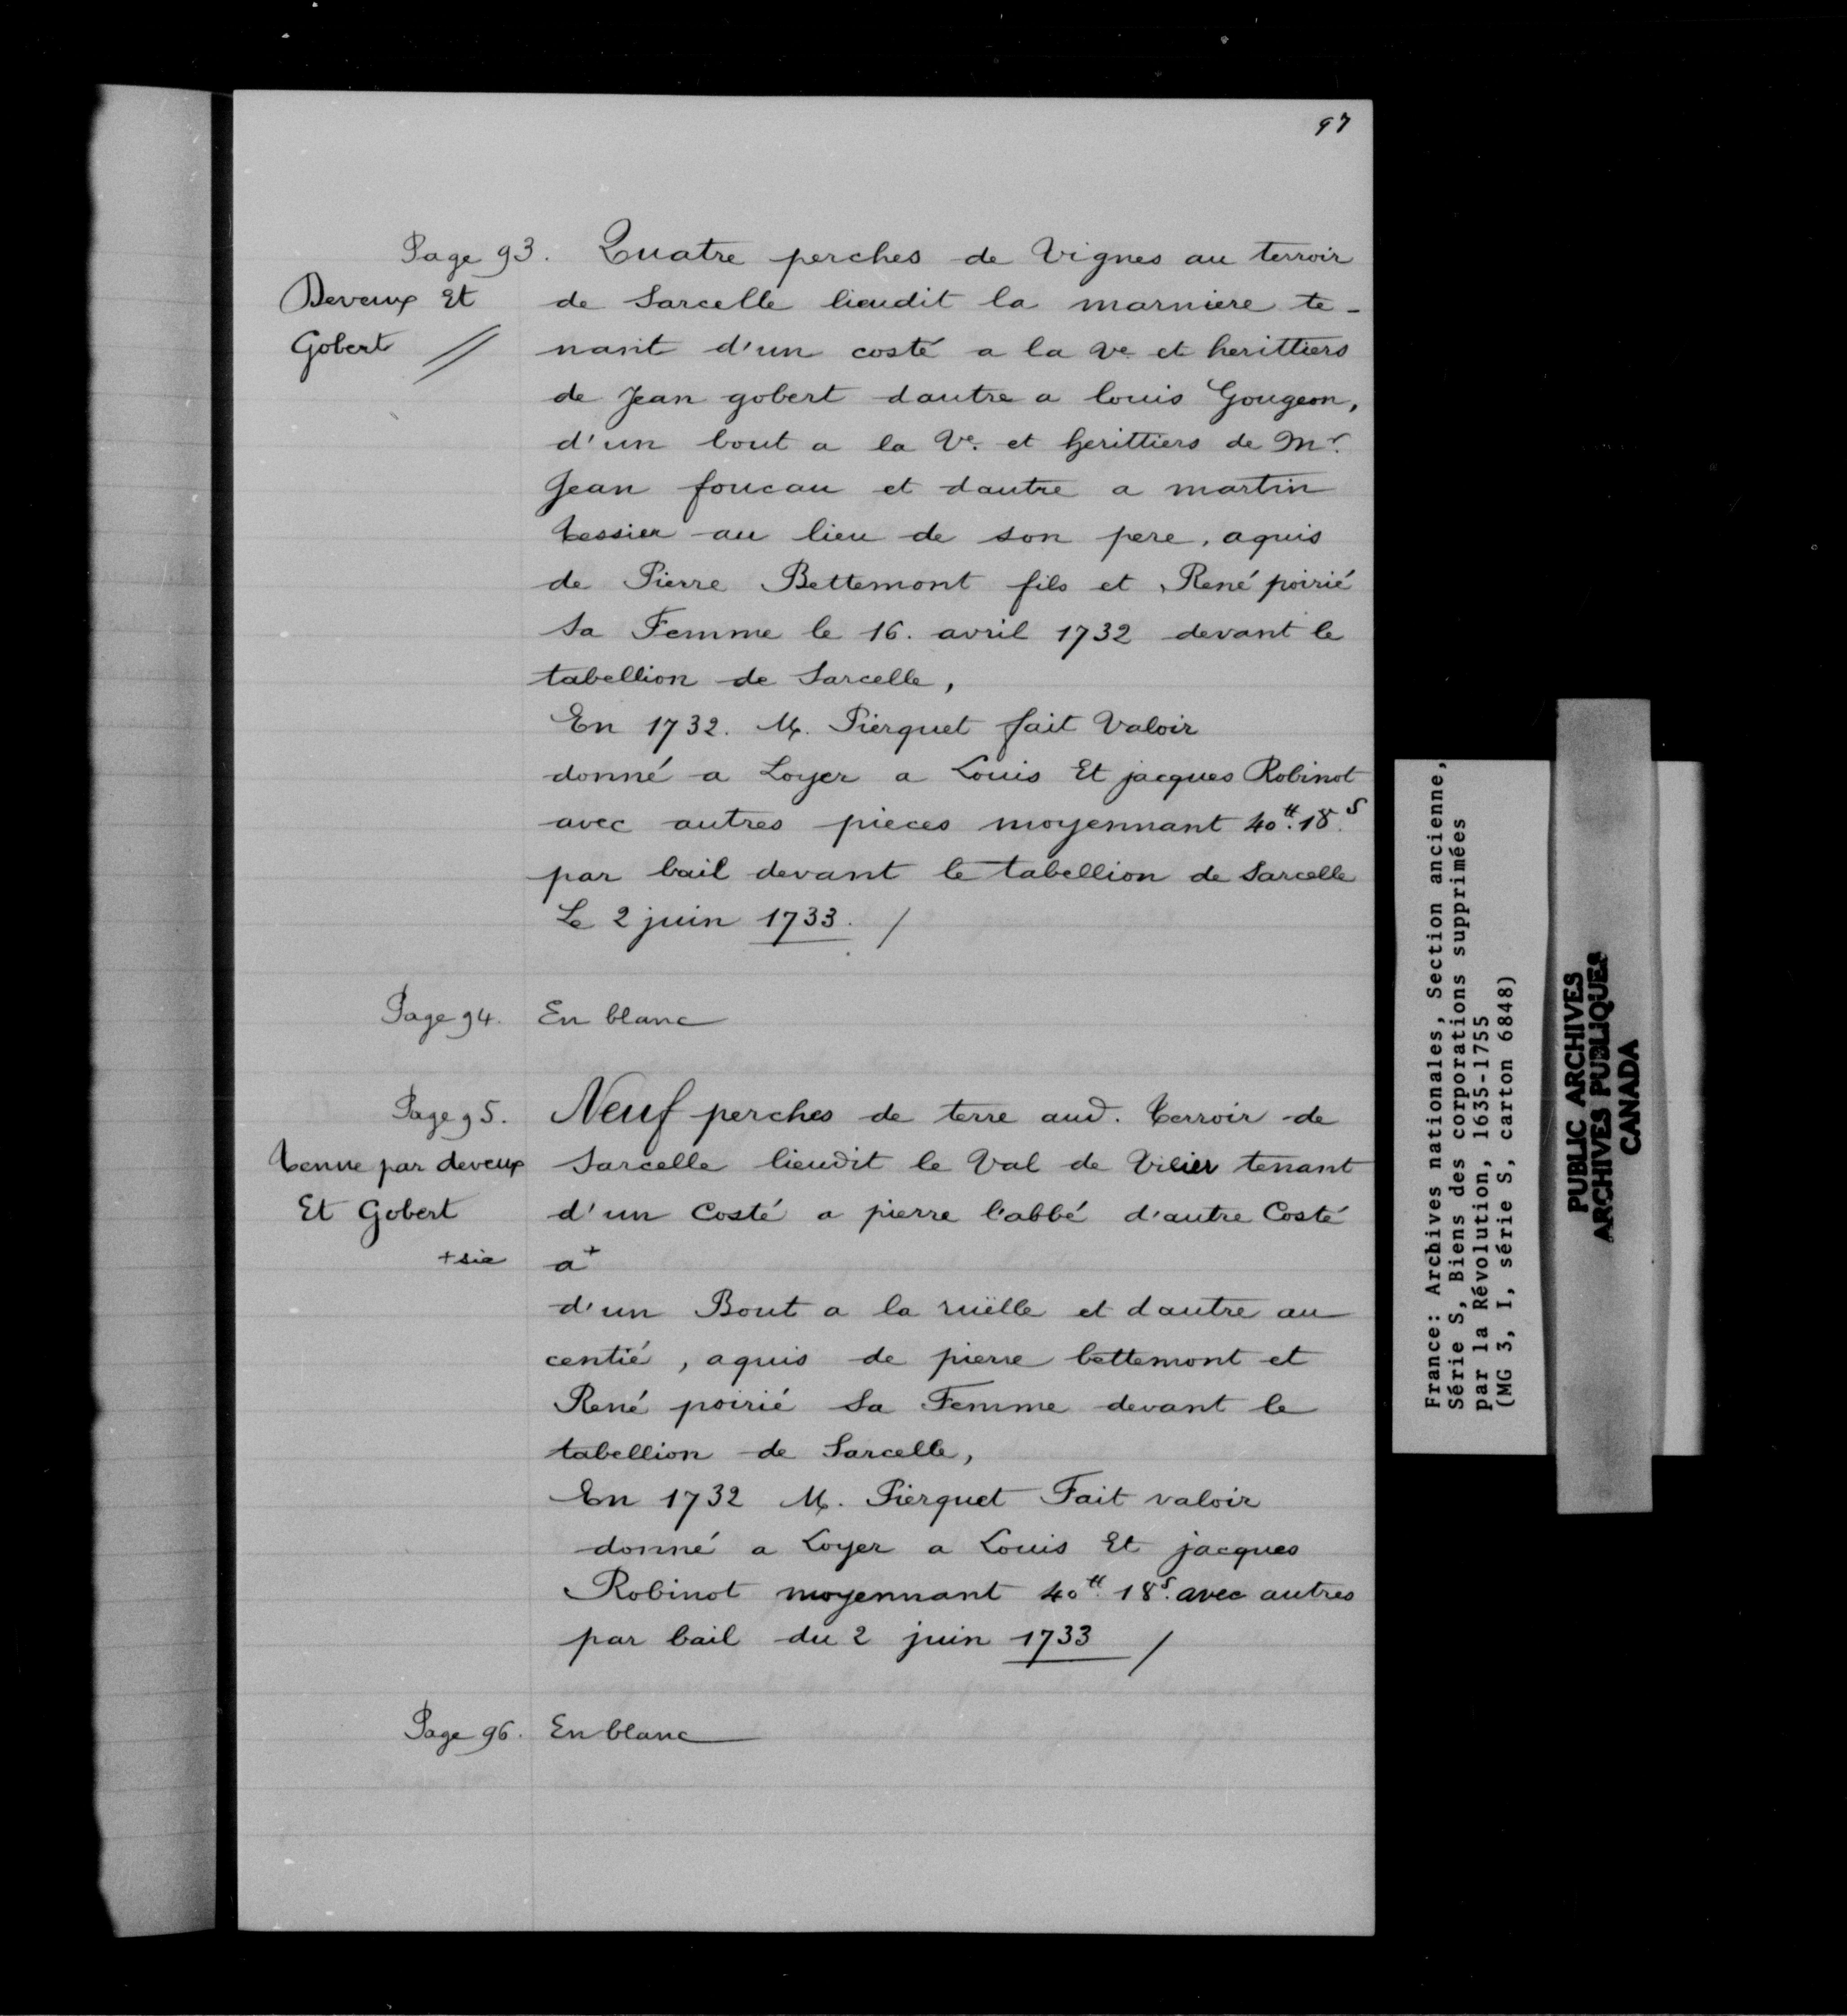 97
Page 93. Quatre perches de Vignes au terroir
Deveux Et
Gobert //
de Sarcelle lieudit la marniere te-
nant d'un costé a la Ve et herittiers
de Jean gobert dautre a louis Gougeon,
d'un bout a la Ve. et herittiers de Mr.
Jean foucau et dautre a martin
tessier au lieu de son pere, aquis
de Pierre Bettemont fils et René poirié
sa Femme le 16. avril 1732 devant le
tabellion de Sarcelle,
En 1732. M. Pierquet fait Valoir
donné a Loyer a Louis Et jacques Robinot
avec autres pieces moyennant 40tt. 18.s
par bail devant le tabellion de Sarcelle
Le 2 juin 1733. /
Page 94. En blanc
Page 95. Neuf perches de terre aud. terroir de
tenue par deveux
Et Gobert
+ sic
Sarcelle lieudit le Val de Vilier tenant
d'un Costé a pierre l'abbé d'autre Costé
a+
d'un Bout a la ruëlle et dautre au
centié, aquis de pierre bettemont et
René poirié sa Femme devant le
tabellion de Sarcelle,
En 1732 M. Pierquet Fait valoir
donné a Loyer a Louis Et jacques
Robinot moyennant 40tt. 18s. avec autres
par bail du 2 juin 1733 /
Page 96. En blanc
France: Archives nationales, Section ancienne,
Série S, Biens des corporations supprimées
par la Révolution, 1635-1755
(MG 3, I, série S, carton 6848)
PUBLIC ARCHIVES
ARCHIVES PUBLIQUES
CANADA